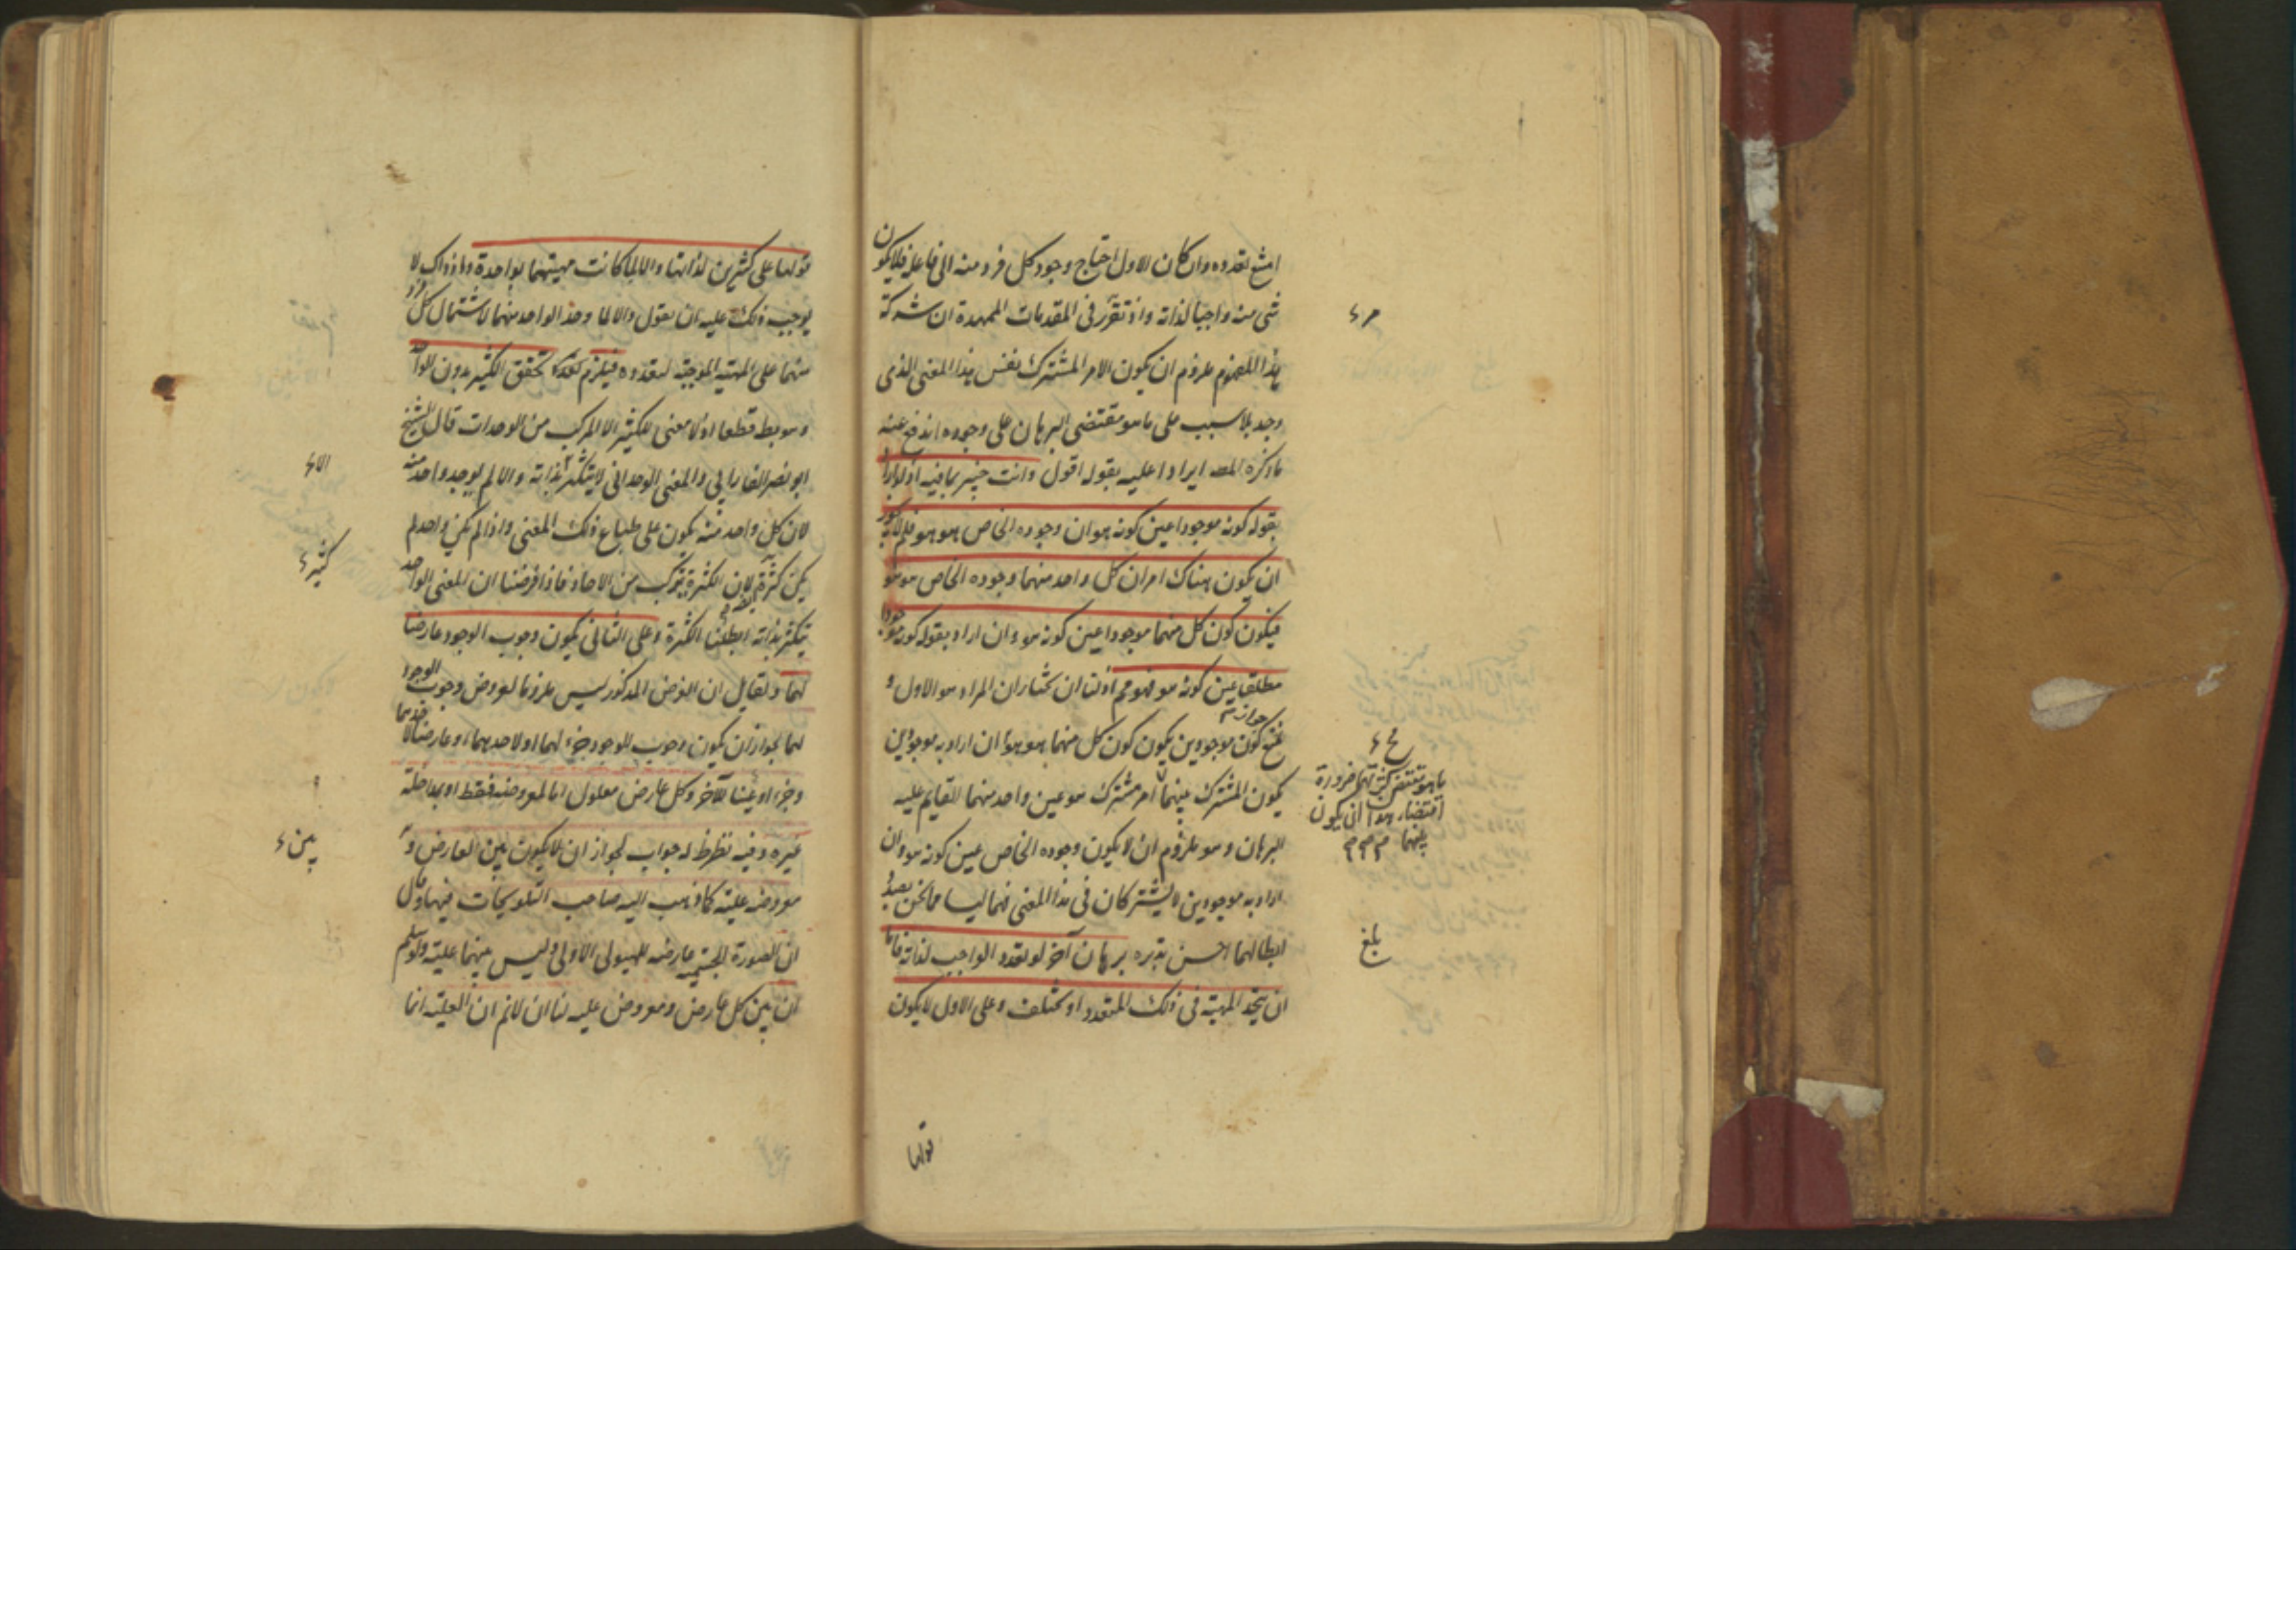 امتنع تعدده وان كان الاول احتاج وجود كل فرد منه الى فاعله فلا يكون
شى منه واجبا لذاته واذ تقرر فى المقدمات الممهدة ان شركة
هذا المفهوم ملزوم ان يكون الامر المشترك نفس هذا المعنى الذى
وجد بلا سبب على ما هو مقتضى البرهان على وجوده اندفع عنه
ما ذكره المص ايرادا عليه بقوله اقول وانت خبير بما فيه اذ لو اراد
بقوله كونه موجودا عين كونه هو ان وجوده الخاص هو هو فلم لا يجوز
ان يكون هناك امران كل واحد منهما وجوده الخاص هو هو
فيكون كون كل منهما موجودا عين كونه هو وان اراد بقوله كونه موجودا
مطلقا عين كونه هو فهو مم اذ لنا ان نختار ان المراد هو الاول و
نمنع جواز كون موجودين يكون كون كل منهما هو هو ان اراد به موجودين
يكون المشترك بينهما امر مشترك هو عين واحد منهما للقايم عليه
البرهان وهو ملزوم ان لا يكون وجوده الخاص عين كونه هو وان
اراد به موجودين لا يشتركان فى هذا المعنى فهما ليسا مما نحن بصدد
ابطالهما احسن تدبره برهان آخر لو تعدد الواجب لذاته فاما
ان يتحد المهية فى ذلك المتعدد او تختلف وعلى الاول لا يكون
بلغ
قولها
قولها على كثيرين لذاتها والا لما كانت مهيتهما بواحدة واذ ذاك لا
يوجب ذلك عليه ان يقول والا لما وجد الواحد منهما لاشتمال كل فرد
منهما على المهية الموجبة لتعدده فيلزم تحقق الكثير بدون الواحد
وهو بط قطعا اذ لا معنى للكثير الا المركب من الوحدات قال الشيخ
ابو نصر الفارابي والمعنى الوحدانى لا يتكثر بذاته والا لم يوجد واحد منه
لان كل واحد منه يكون على طباع ذلك المعنى واذا لم يكن واحد لم
يكن كثرة لان الكثرة تتركب من الاحاد فاذا فرضنا ان المعنى الواحد
يتكثر بذاته ابطلنا الكثرة وعلى الثانى يكون وجوب الوجود عارضا
لهما ولقايل ان الفرض المذكور ليس ملزوما لعروض وجوب الوجود
لهما لجواز ان يكون وجوب الوجود جزء لهما او لاحدهما، وعارضا لاحدهما
وجزء او عينا للآخر وكل عارض معلول اما لمعروضه فقط او بمداخلة
غيره وفيه نظر ظ له جواب لجواز ان لا يكون بين العارض و
معروضه علية كما ذهب اليه صاحب التلويحات فيها وقال
ان الصورة الجسمية عارضه للهيولى الاولى وليس بينهما علية ولو سلم
ان بين كل عارض ومعروض علية لنا ان لا نم ان العلية انما